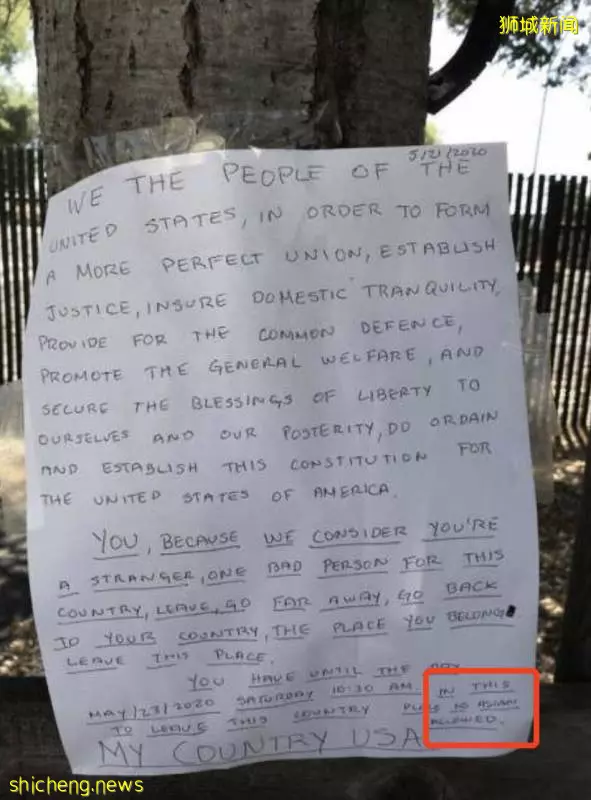 狮城新闻
5/21/2020
WE THE PEOPLE OF THE
UNITED STATES, IN ORDER TO FORM
A MORE PERFECT UNION, ESTABLISH
JUSTICE, INSURE DOMESTIC TRANQUILITY,
PROVIDE FOR THE COMMON DEFENCE,
PROMOTE THE GENERAL WELFARE, AND
SECURE THE BLESSINGS OF LIBERTY TO
OURSELVES AND OUR POSTERITY, DO ORDAIN
AND ESTABLISH THIS CONSTITUTION FOR
THE UNITED STATES OF AMERICA.
YOU, BECAUSE WE CONSIDER YOU'RE
A STRANGER, ONE BAD PERSON FOR THIS
COUNTRY, LEAVE, GO FAR AWAY, GO BACK
TO YOUR COUNTRY, THE PLACE YOU BELONG
LEAVE THIS PLACE.
YOU HAVE UNTIL THE DAY
MAY/23/2020 SATURDAY 10:30 AM. IN THIS
TO LEAVE THIS COUNTRY PLACE NO ASIANS
ALLOWED.
MY COUNTRY USA
shicheng.news